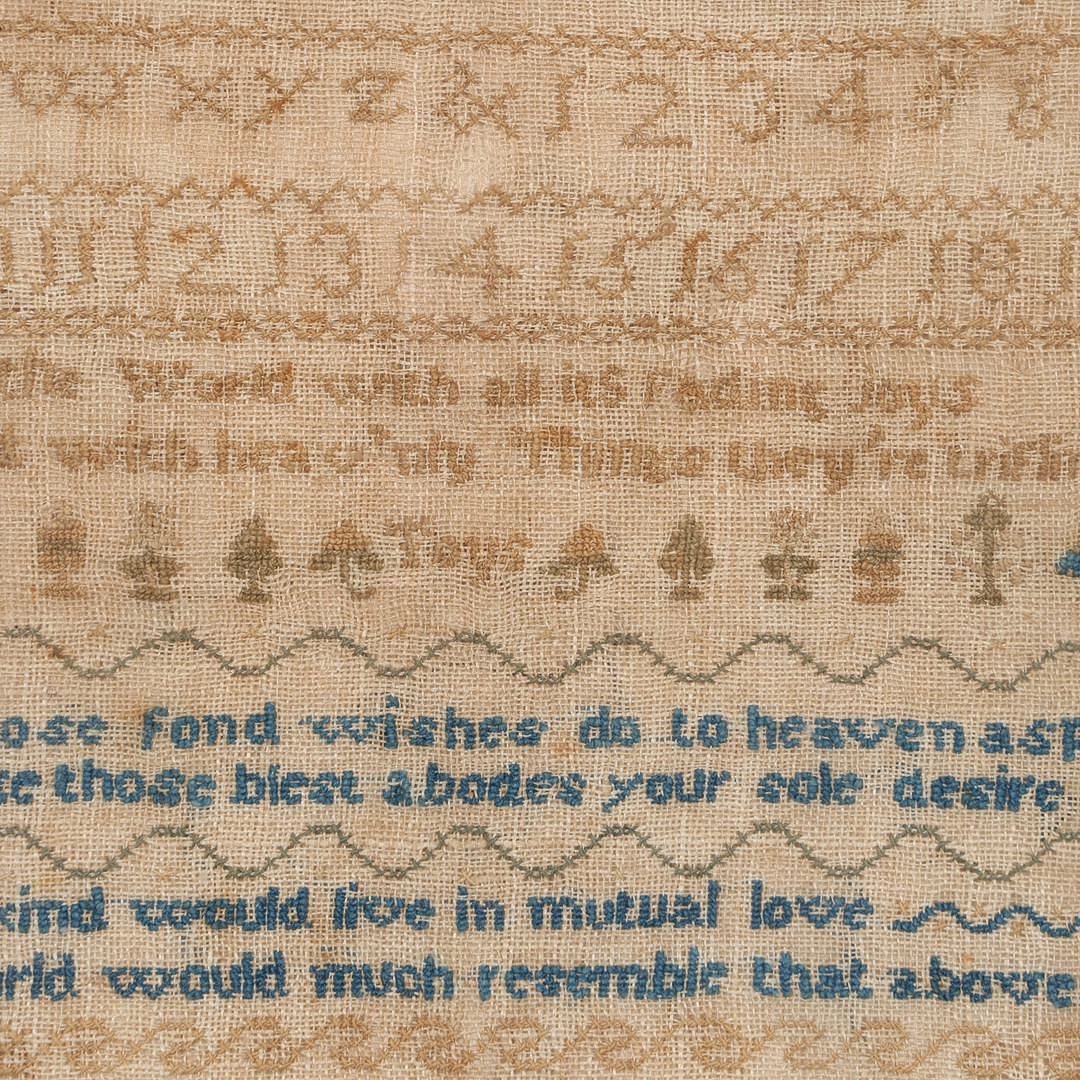 w x y z & 1 2 3 4
11 12 13 14 15 16 17 18 1
the World with all its fading Joys
Toys
ose fond wishes do to heaven asp
se those blest abodes your sole desire
kind would live in mutual love
orld would much resemble that above